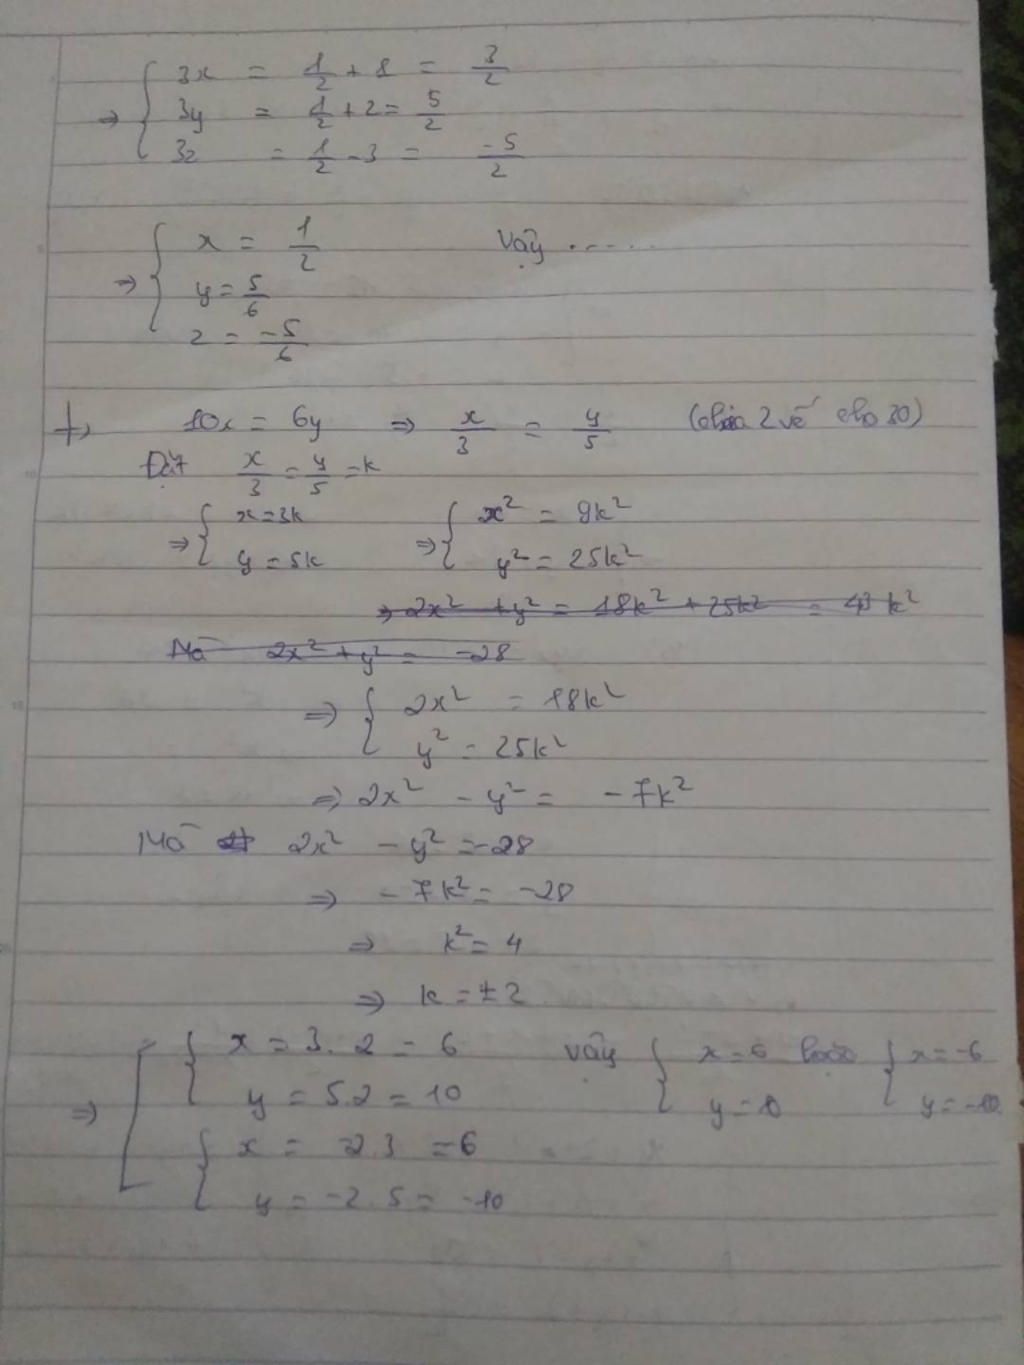 ⇒ { 3x = 1/2 + 1 = 3/2
3y = 1/2 + 2 = 5/2
3z = 1/2 - 3 = -5/2
⇒ { x = 1/2 Vậy .....
y = 5/6
z = -5/6
+, 10x = 6y ⇒ x/3 = y/5 (chia 2 vế cho 30)
Đặt x/3 = y/5 = k
⇒ { x = 3k ⇒ { x² = 9k²
y = 5k y² = 25k²
⇒ 2x² + y² = 18k² + 25k² = 43k²
Mà 2x² + y² = -28
⇒ { 2x² = 18k²
y² = 25k²
⇒ 2x² - y² = -7k²
Mà 2x² - y² = -28
⇒ -7k² = -28
⇒ k² = 4
⇒ k = ±2
⇒ [ { x = 3.2 = 6 Vậy { x = 6 hoặc { x = -6
y = 5.2 = 10 y = 10 y = -10
{ x = -2.3 = -6
y = -2.5 = -10